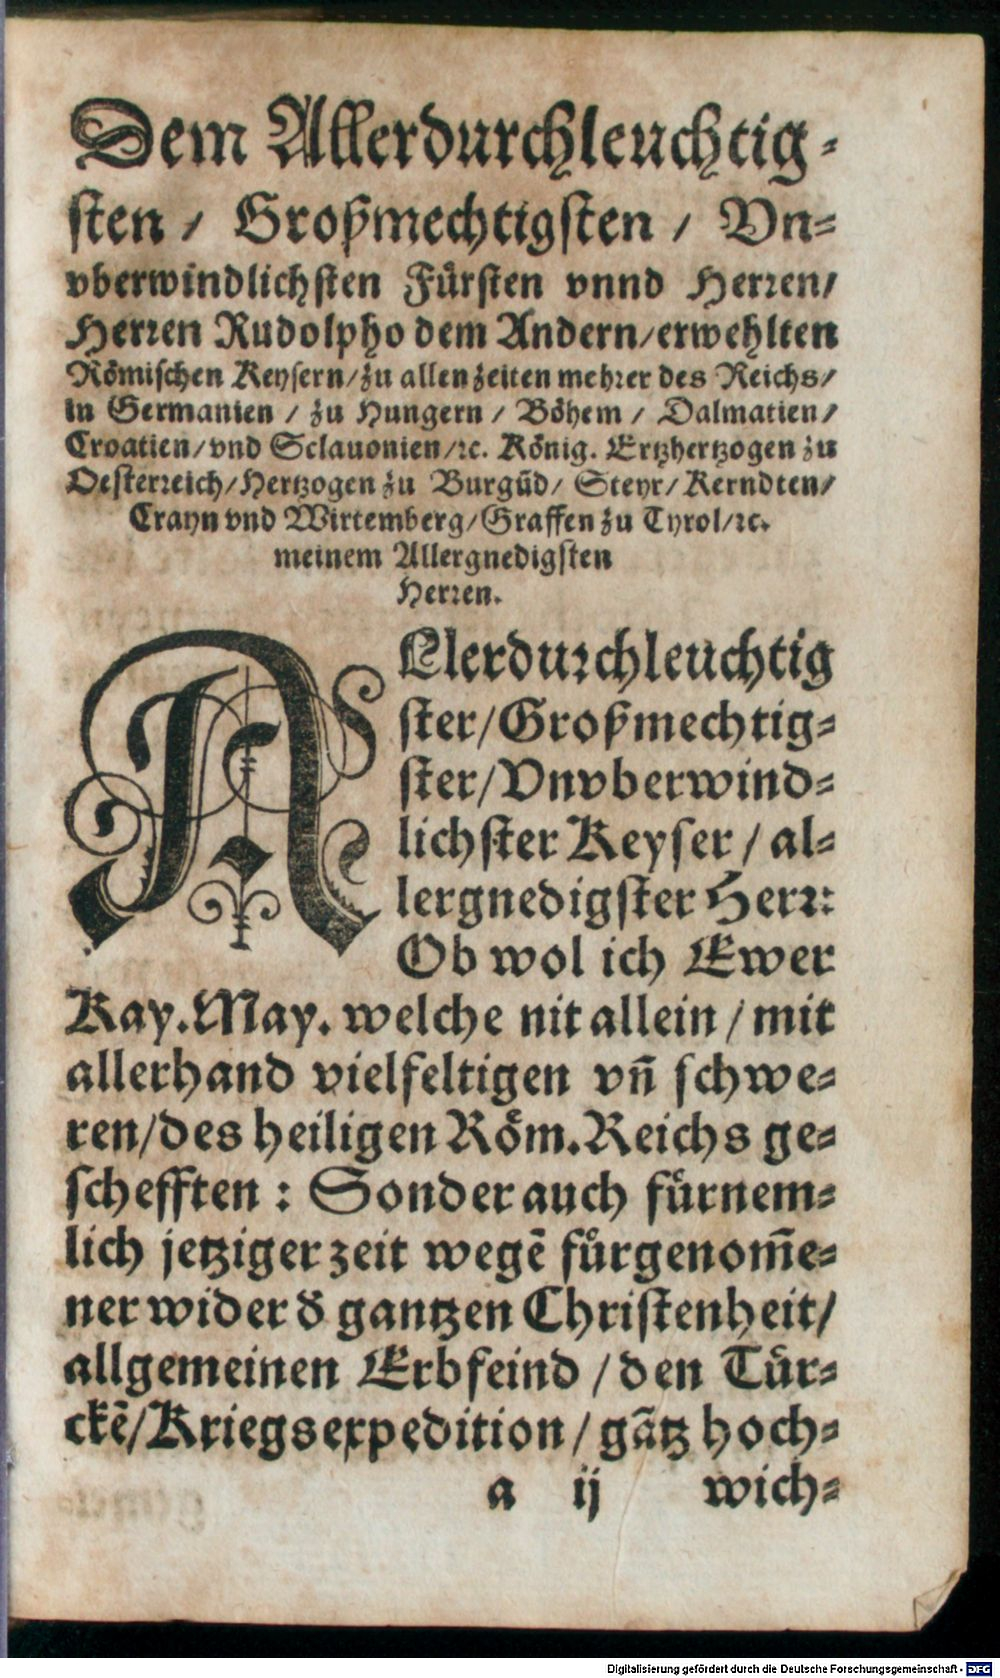 Dem Allerdurchleuchtig-
sten / Großmechtigsten / Vn-
vberwindlichsten Fürsten vnnd Herren/
Herren Rudolpho dem Andern/erwehlten
Römischen Keysern/zu allen zeiten mehrer des Reichs/
in Germanien / zu Hungern / Böhem / Dalmatien/
Croatien/vnd Sclauonien/ꝛc. König. Ertzhertzogen zu
Oesterreich/Hertzogen zu Burgūd/ Steyr/Kerndten/
Crayn vnd Wirtemberg/Graffen zu Tyrol/ꝛc.
meinem Allergnedigsten
Herren.
ALlerdurchleuchtig
ster/Großmechtig-
ster/Vnvberwind-
lichster Keyser / al-
lergnedigster Herr:
Ob wol ich Ewer
Kay.May. welche nit allein / mit
allerhand vielfeltigen vn̄ schwe-
ren/des heiligen Röm.Reichs ge-
schefften : Sonder auch fürnem-
lich jetziger zeit wegē fürgenom̄e-
ner wider d̄ gantzen Christenheit/
allgemeinen Erbfeind / den Tür-
ckē/Kriegsexpedition / gātz hoch-
a ij wich-
Digitalisierung gefördert durch die Deutsche Forschungsgemeinschaft - DFG